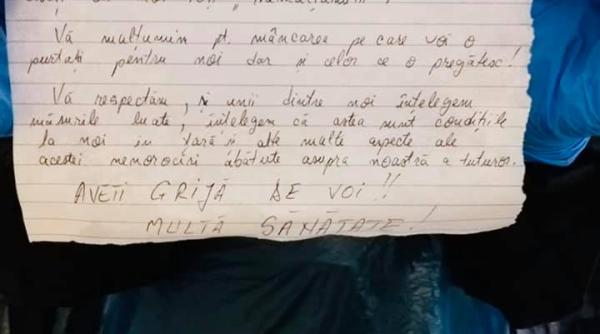 Vă mulțumim pt. mâncarea pe care voi o
purtați pentru noi dar și celor ce o pregătesc!
Vă respectăm, și unii dintre noi înțelegem
măsurile luate, înțelegem că astea sunt condițiile
la noi în țară și alte multe aspecte ale
acestei nenorociri abătute asupra noastră a tuturor.
AVEȚI GRIJĂ DE VOI!!
MULTĂ SĂNĂTATE!